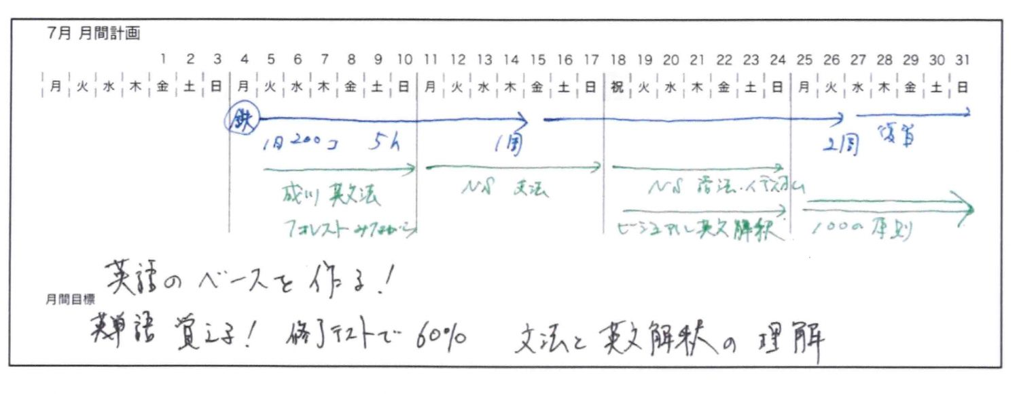 7月 月間計画
1 2 3 4 5 6 7 8 9 10 11 12 13 14 15 16 17 18 19 20 21 22 23 24 25 26 27 28 29 30 31
月 火 水 木 金 土 日 月 火 水 木 金 土 日 月 火 水 木 金 土 日 祝 火 水 木 金 土 日 月 火 水 木 金 土 日
鉄
1日200コ 5h 1周 2周 復習
成川 英文法 NS 文法 NS 語法・イディオム
フォレストみながら ビジュアル英文解釈 100の原則
英語のベースを作る!
月間目標
英単語 覚える! 修了テストで60% 文法と英文解釈の理解